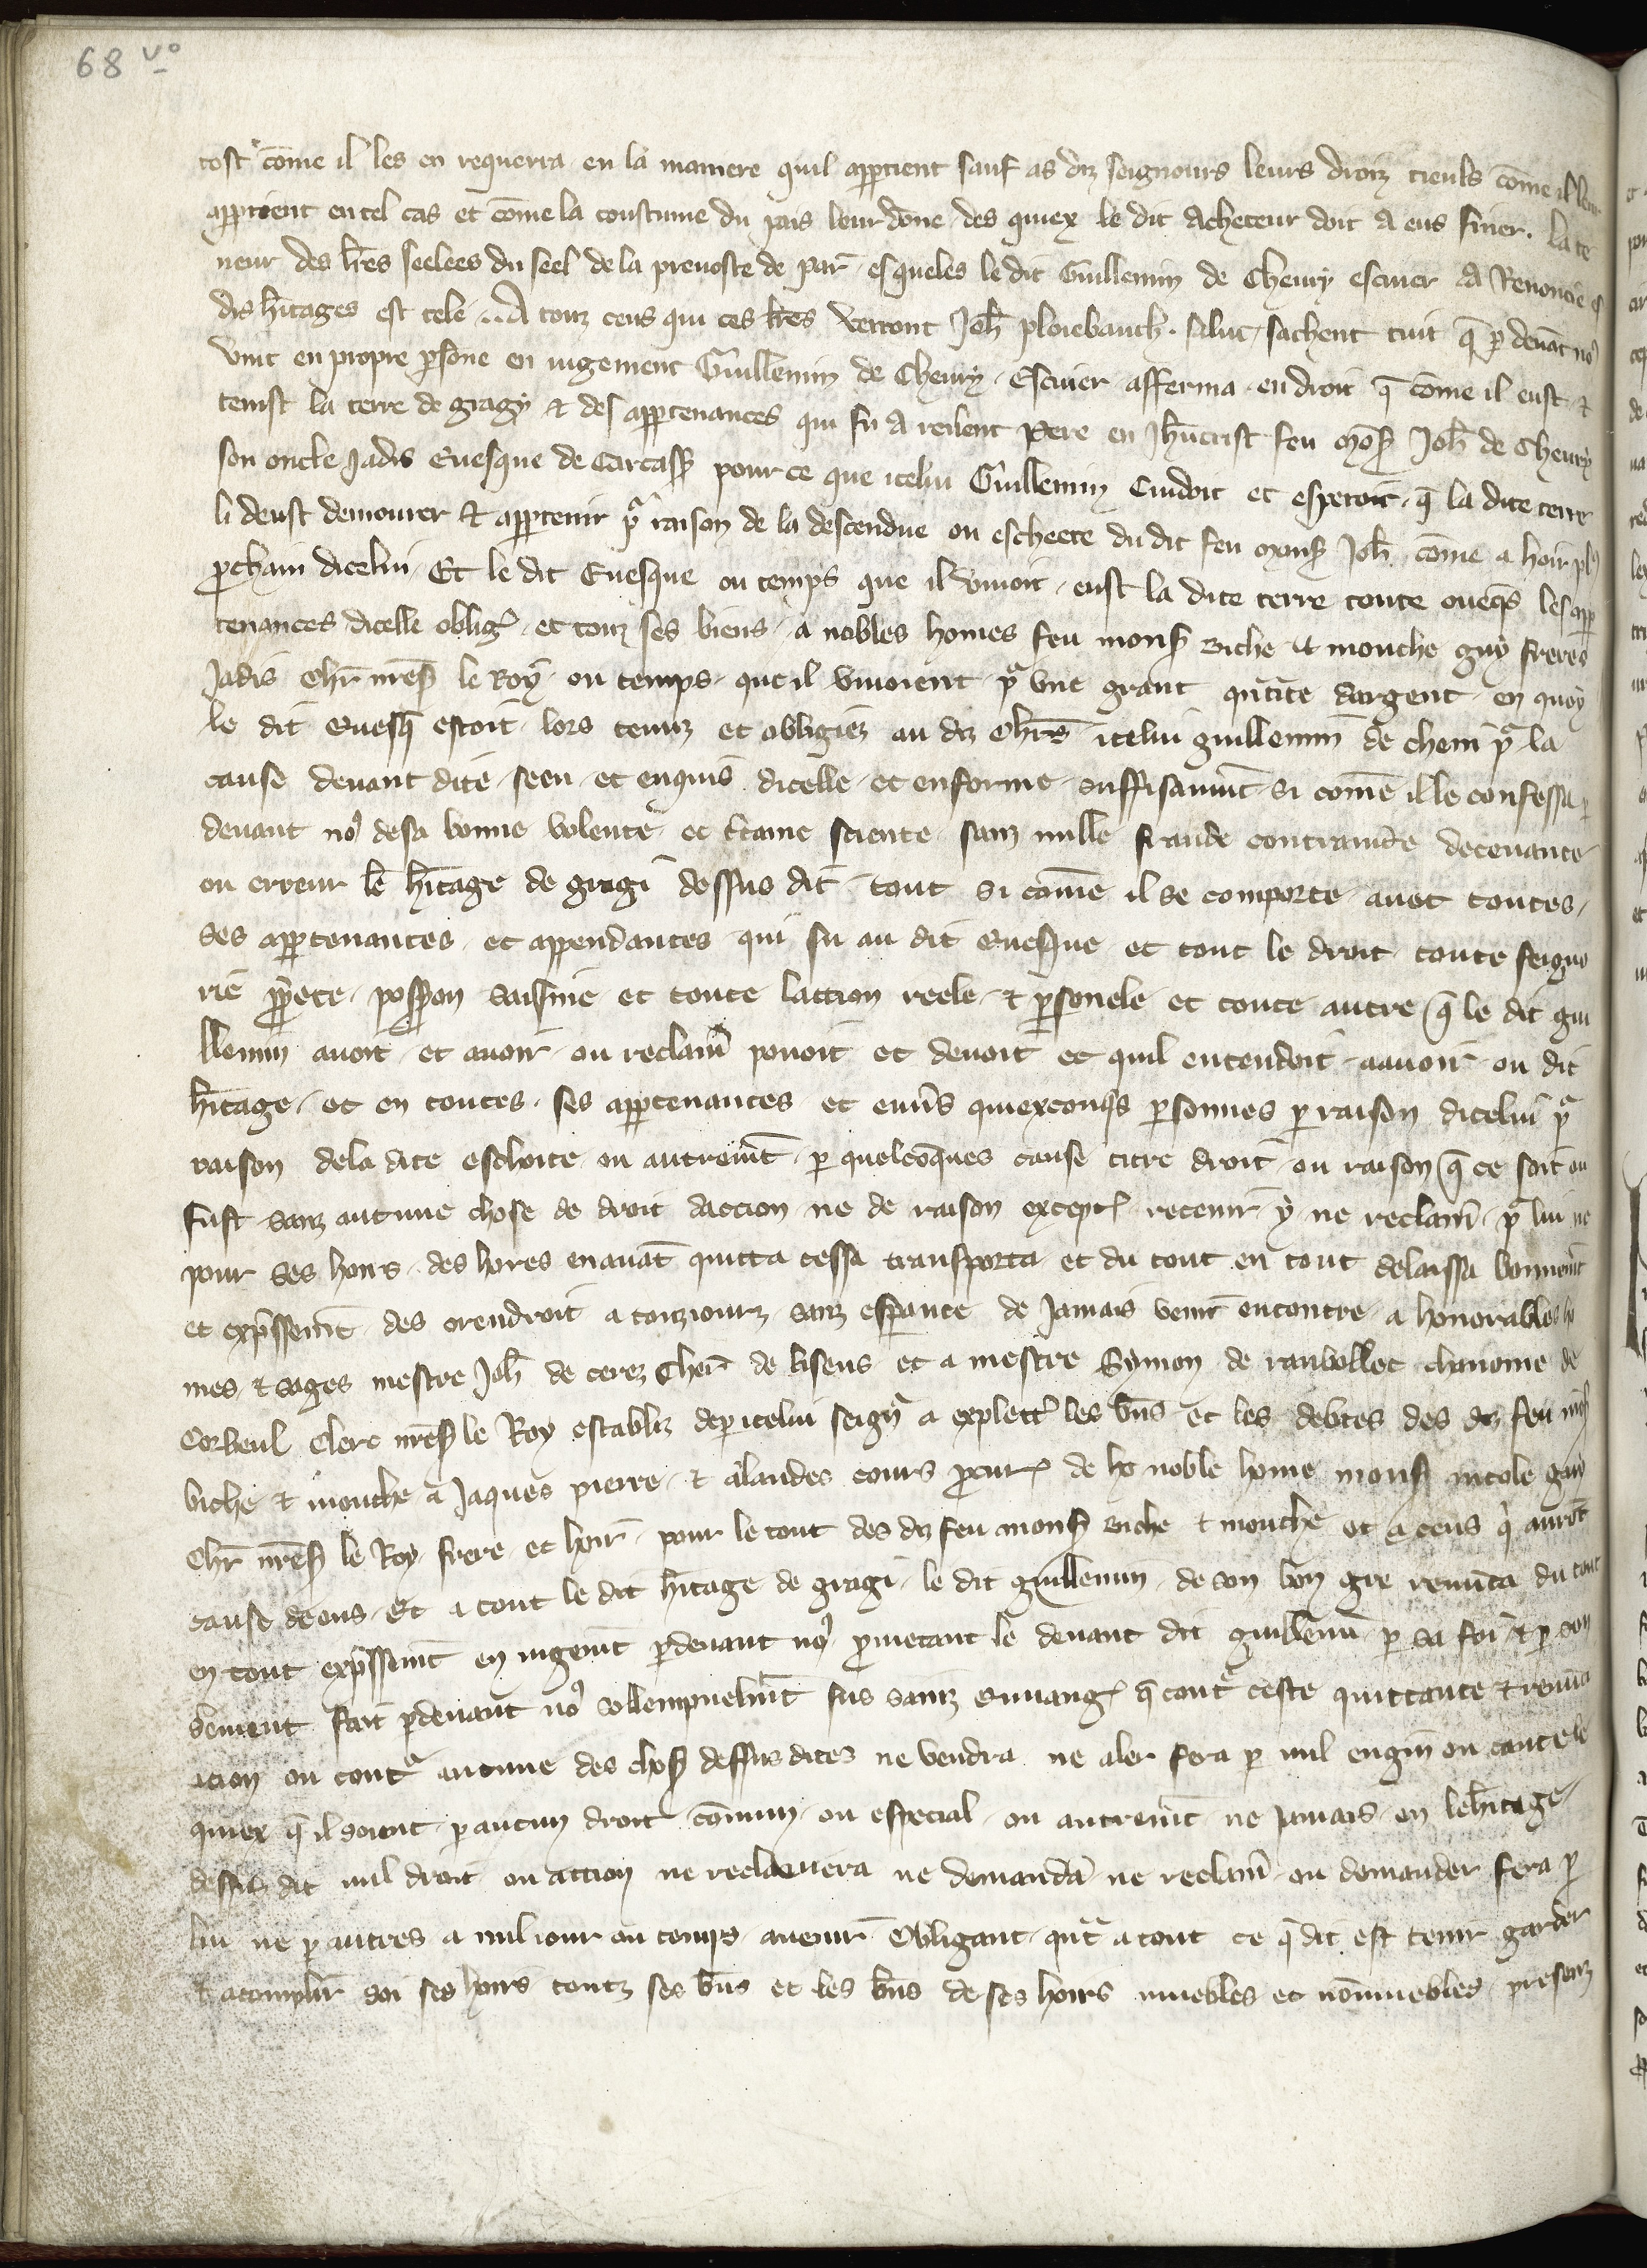 68 vo
tost come il les en requerra en la maniere quil appartient sauf as diz seignours leurs droiz tieuls come il leur
apptient en tel cas et come la coustume du pais leur done des quiex le dit Acheteur doit a eus finer. la te
neur des lres seelees du seel de la prevoste de par esqueles le dit Guillemin de Chevry escuier A Renoncie es
dis hitages est tele .. A touz ceus qui ces lres verront Joh ploiebauch. salut sachent tuit q p devat nos
vint en propre psone en iugement Guillemin de Chevry Escuier afferma en droit q come il eust et
tenist la terre de gragy et des appartenances qui fu A reverent Pere en Jhucrist feu mons Joh de Chevry
son oncle Jadis Evesque de Carcass pour ce que icelui Guillemin Cuidoit et esperoit q la dite terre
li deust demourer et appartenir pr raison de la descendue ou escheete du dit feu mons Joh come a hoir plus
pchain dicelui Et le dit Evesque ou temps que il vivoit eust la dite terre toute oveqs les app
tenances dicelle oblig et touz ses biens a nobles homes feu mons Biche et mouche guy freres
Jadis chr nres le Roy ou temps que il vivoient pr une grant qntite dargent en quoy
le dit Evesq estoit lors tenuz et obligiez au diz chrs icelui guillemin de chevri pr la
cause devant dite seen et enquis dicelle et enforme suffisaumt si come il le confessa p
devant nos de sa bonne volente et ctaine sciente sanz nulle fraude contrainte decevance
ou erreur le hitage de gragi dessus dit tout si come il se comporte avec toutes
ses appartenances et appendances qui fu au dit Evesque et tout le droit toute seigno
rie ppete possion saisine et toute laction reele et psonele et toute autre q le dit gui
llemin avoit et avoir ou reclam povoit et devoit et quil entendoit a avoir ou dit
hitage et en toutes ses appartenances et envs quiexconqs psonnes p raison dicelui pr
raison de la dite eschoite ou autremt p quelcoques cause titre droit ou raison q ce soit ou
fust sanz aucune chose de droit daccion ne de raison except retenir y ne reclam pr lui ne
pour ses hoirs des hores en avat quitta cessa transporta et du tout en tout delaissa bonnemt
et expssemt des orendroit a touziourz sanz esperance de Jamais venir encontre a honorables ho
mes et sages mestre Joh de cerez Cher de lisens et a mestre Symon de ranbollet chanoine de
Corbeul Clers nres le Roy establiz de p icelui seignr a explett les bns et les debtes des diz feu mons
biche et mouche a Jaques pierre et alandes cours pcur de ho noble home mons nicole guy
Chr nres le Roy frere et hoir pour le tout des diz feu mons Biche et mouche et a ceus qi auront
cause de eus Et a tout le dit hitage de gragi le dit guillemin de son bon gre renunca du tout
en tout expssemt en iugemt pdevant nos pmetant le devant dit guillemin p sa foi et p son
serment fait pdevant nos sollempnelmt sus sainz Euvang q contr ceste quittance et renun
cacion ou contr aucune des chos dessus dites ne vendra ne aler fera p nul engin ou cautele
quiex q il soient p aucun droit comun ou especial ou autremt ne jamais en leritage
dessus dit nul droit ou accion ne reclamera ne demandra ne reclam ou demander fera p
lui ne p autres a nul iour ou temps avenir Obligant qnt a tout ce q dit est tenir garder
et acomplir soi ses hoirs touz ses bns et les bns de ses hoirs muebles et nomuebles presenz